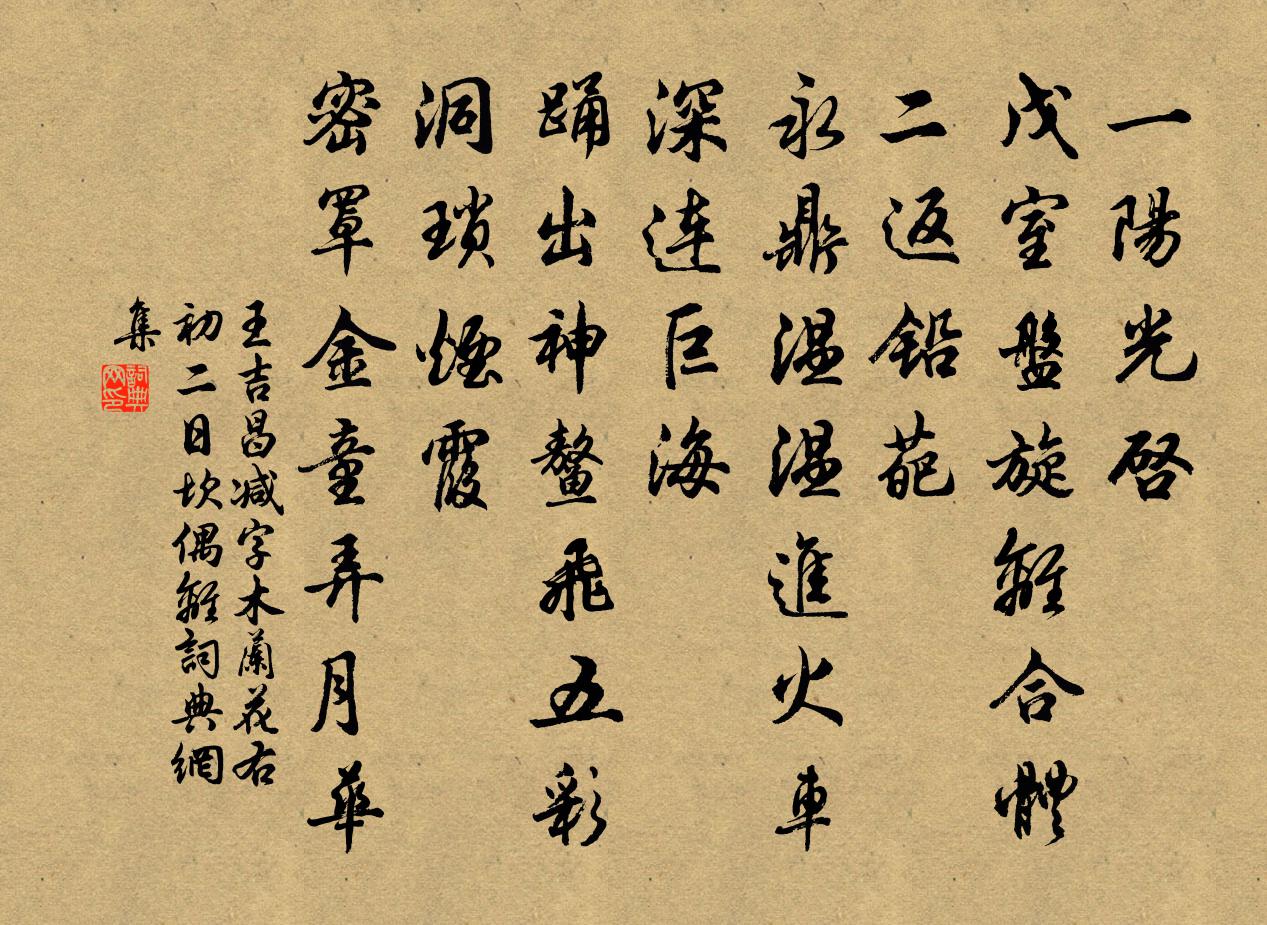 一陽光啓
戊室盤旋離合體
二返鉛葩
永鼎温温進火車
深連巨海
踊出神鰲飛五彩
洞瑣煙霞
密罩金童弄月華
王吉昌减字木蘭花右
初二日坎偶離詞典網
集
詞典
网印